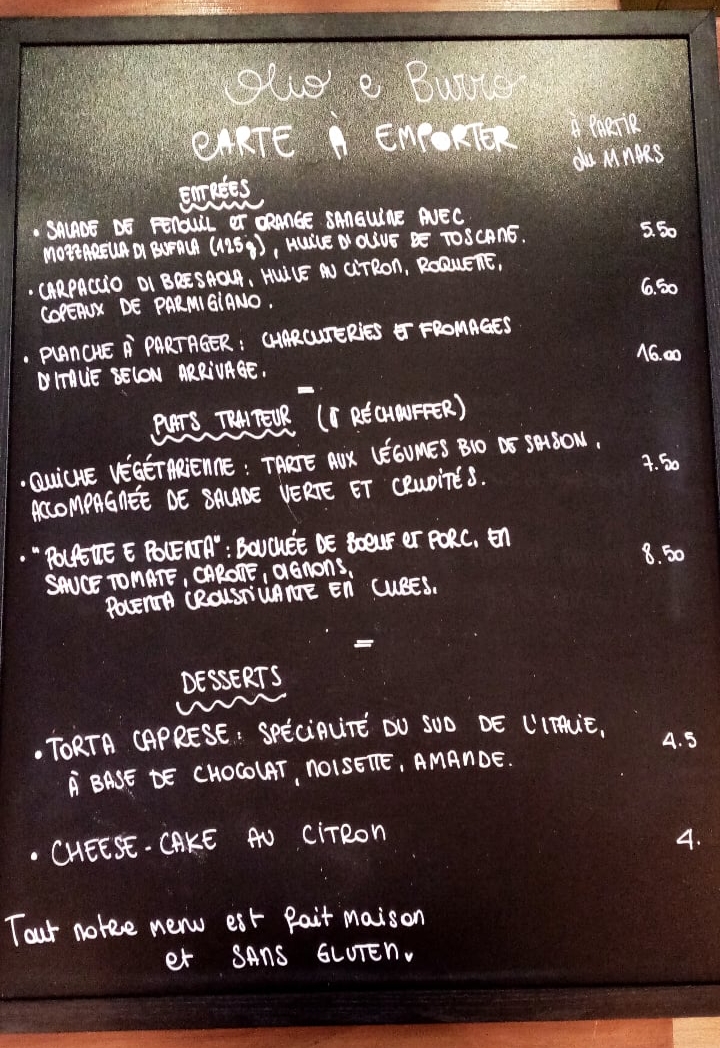 Olio e Burro
CARTE À EMPORTER
À PARTIR
du 11 MARS
ENTRÉES
• SALADE DE FENOUIL ET ORANGE SANGUINE AVEC
MOZZARELLA DI BUFALA (125g), HUILE D'OLIVE DE TOSCANE. 5.50
• CARPACCIO DI BRESAOLA, HUILE AU CITRON, ROQUETTE,
COPEAUX DE PARMIGIANO. 6.50
• PLANCHE À PARTAGER : CHARCUTERIES ET FROMAGES
D'ITALIE SELON ARRIVAGE. 16.00
PLATS TRAITEUR (À RÉCHAUFFER)
• QUICHE VÉGÉTARIENNE : TARTE AUX LÉGUMES BIO DE SAISON,
ACCOMPAGNÉE DE SALADE VERTE ET CRUDITÉS. 7.50
• "POLPETTE E POLENTA" : BOUCHÉE DE BOEUF ET PORC, EN
SAUCE TOMATE, CAROTTE, OIGNONS, 8.50
POLENTA CROUSTILLANTE EN CUBES.
=
DESSERTS
• TORTA CAPRESE : SPÉCIALITÉ DU SUD DE L'ITALIE, 4.5
À BASE DE CHOCOLAT, NOISETTE, AMANDE.
• CHEESE-CAKE AU CITRON 4.
Tout notre menu est fait maison
et SANS GLUTEN.